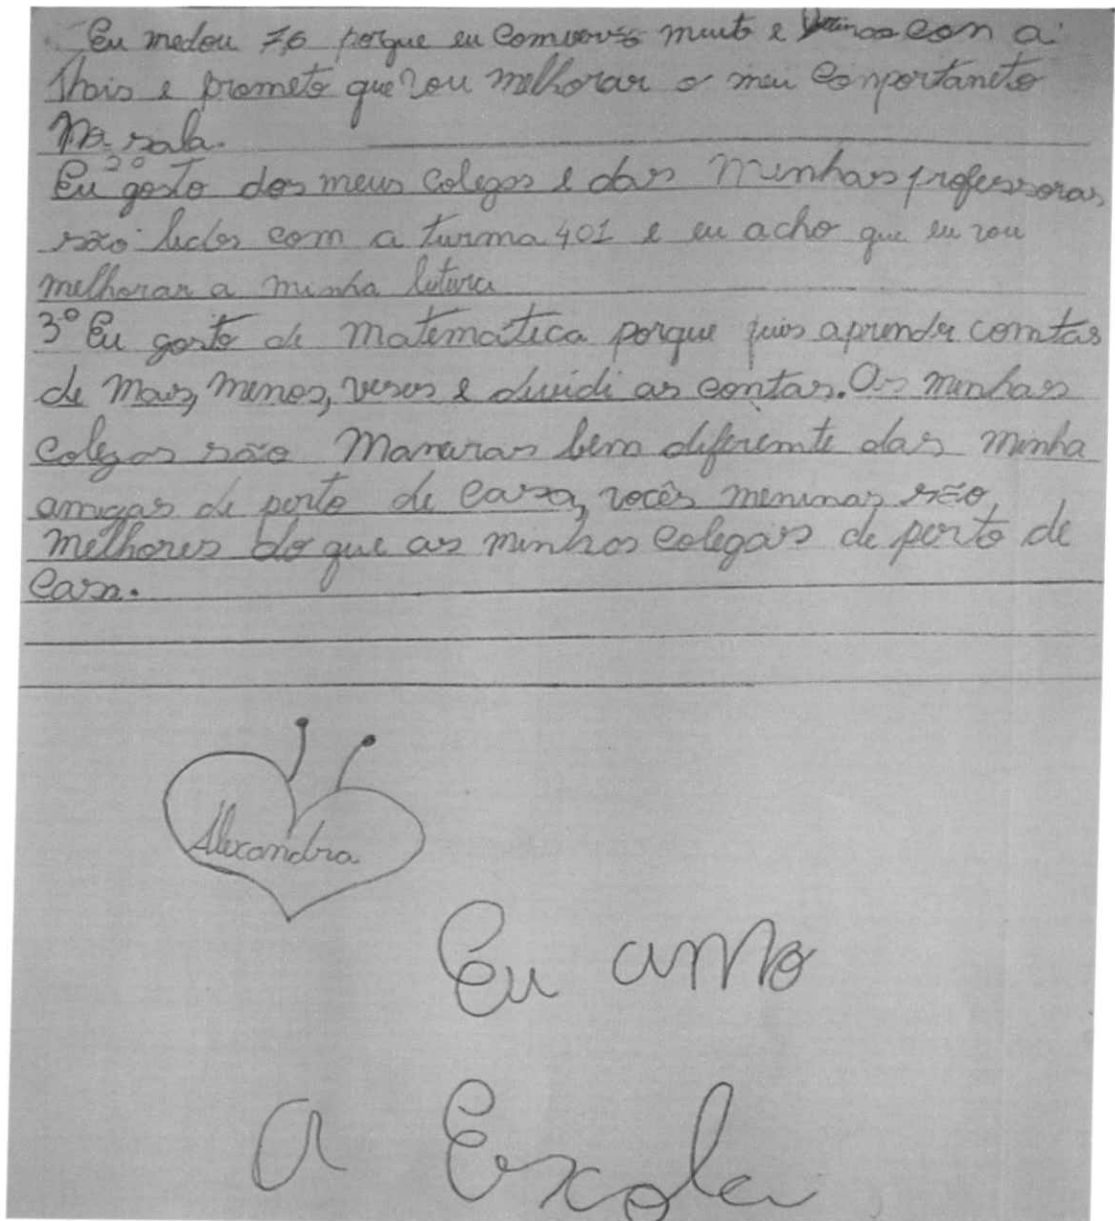 Eu medou 7,0 porque eu comverso muito e con a
Thais e prometo que vou melhorar o meu conportaneto
na sala.
2º
Eu gosto dos meus colegos e das minhas professoras
são com a turma 401 e eu acho que eu vou
melhorar a minha letura
3º Eu gosto de matemática porque aprender comtas
de mais, menos, veses e dividi as contas. As minhas
colegas são Maneras bem diferemte das minha
amigas de perto de casa, vocês meninas são
melhores do que as minhas colegas de perto de
casa.
Alexandra
Eu amo
a Escola